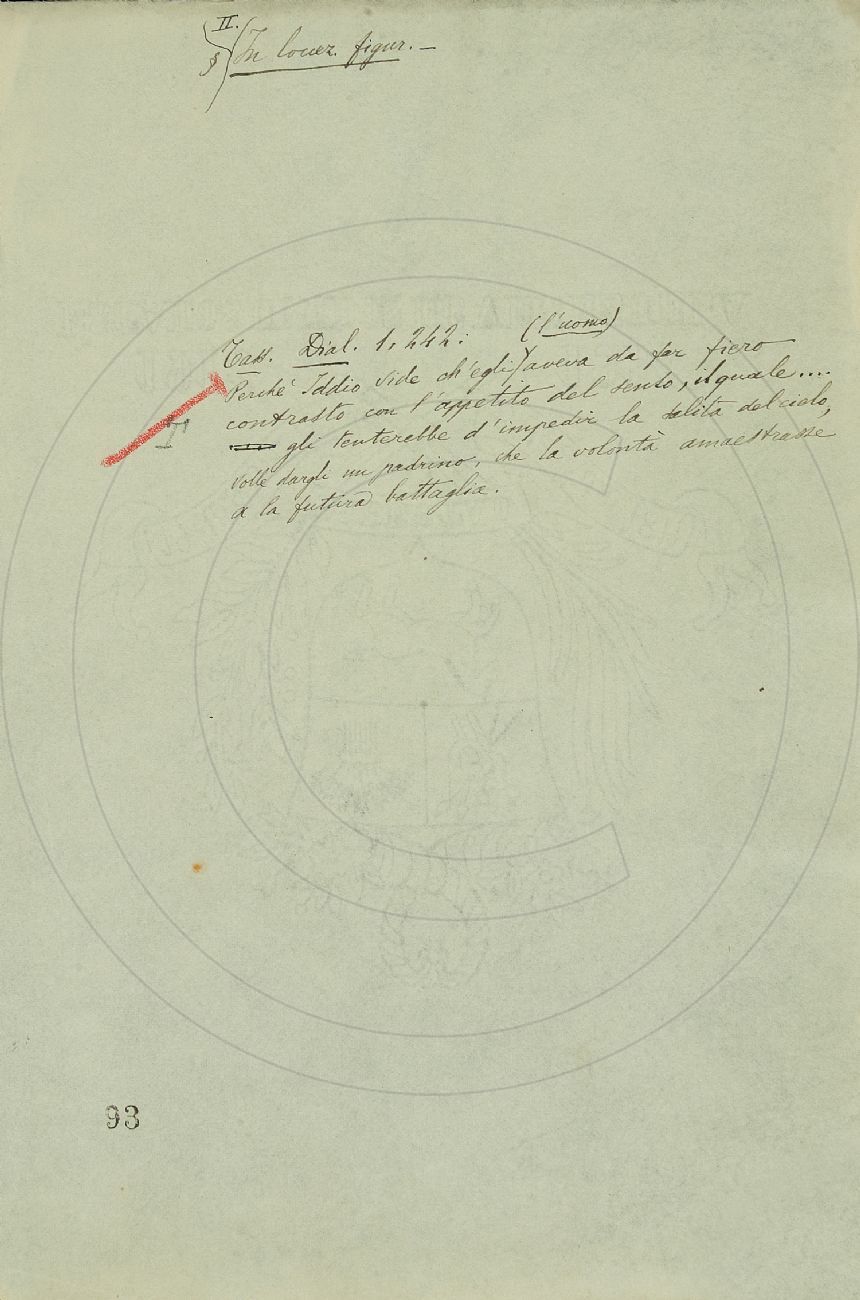 II.
§ In locuz. figur. —
Tass. Dial. 1. 242: (l'uomo)
Perché Iddio vide ch'egli aveva da far fiero
contrasto con l'appetito del senso, il quale....
gli tenterebbe d'impedir la salita del cielo,
volle dargli un padrino, che la volontà amaestrasse
a la futura battaglia.
93